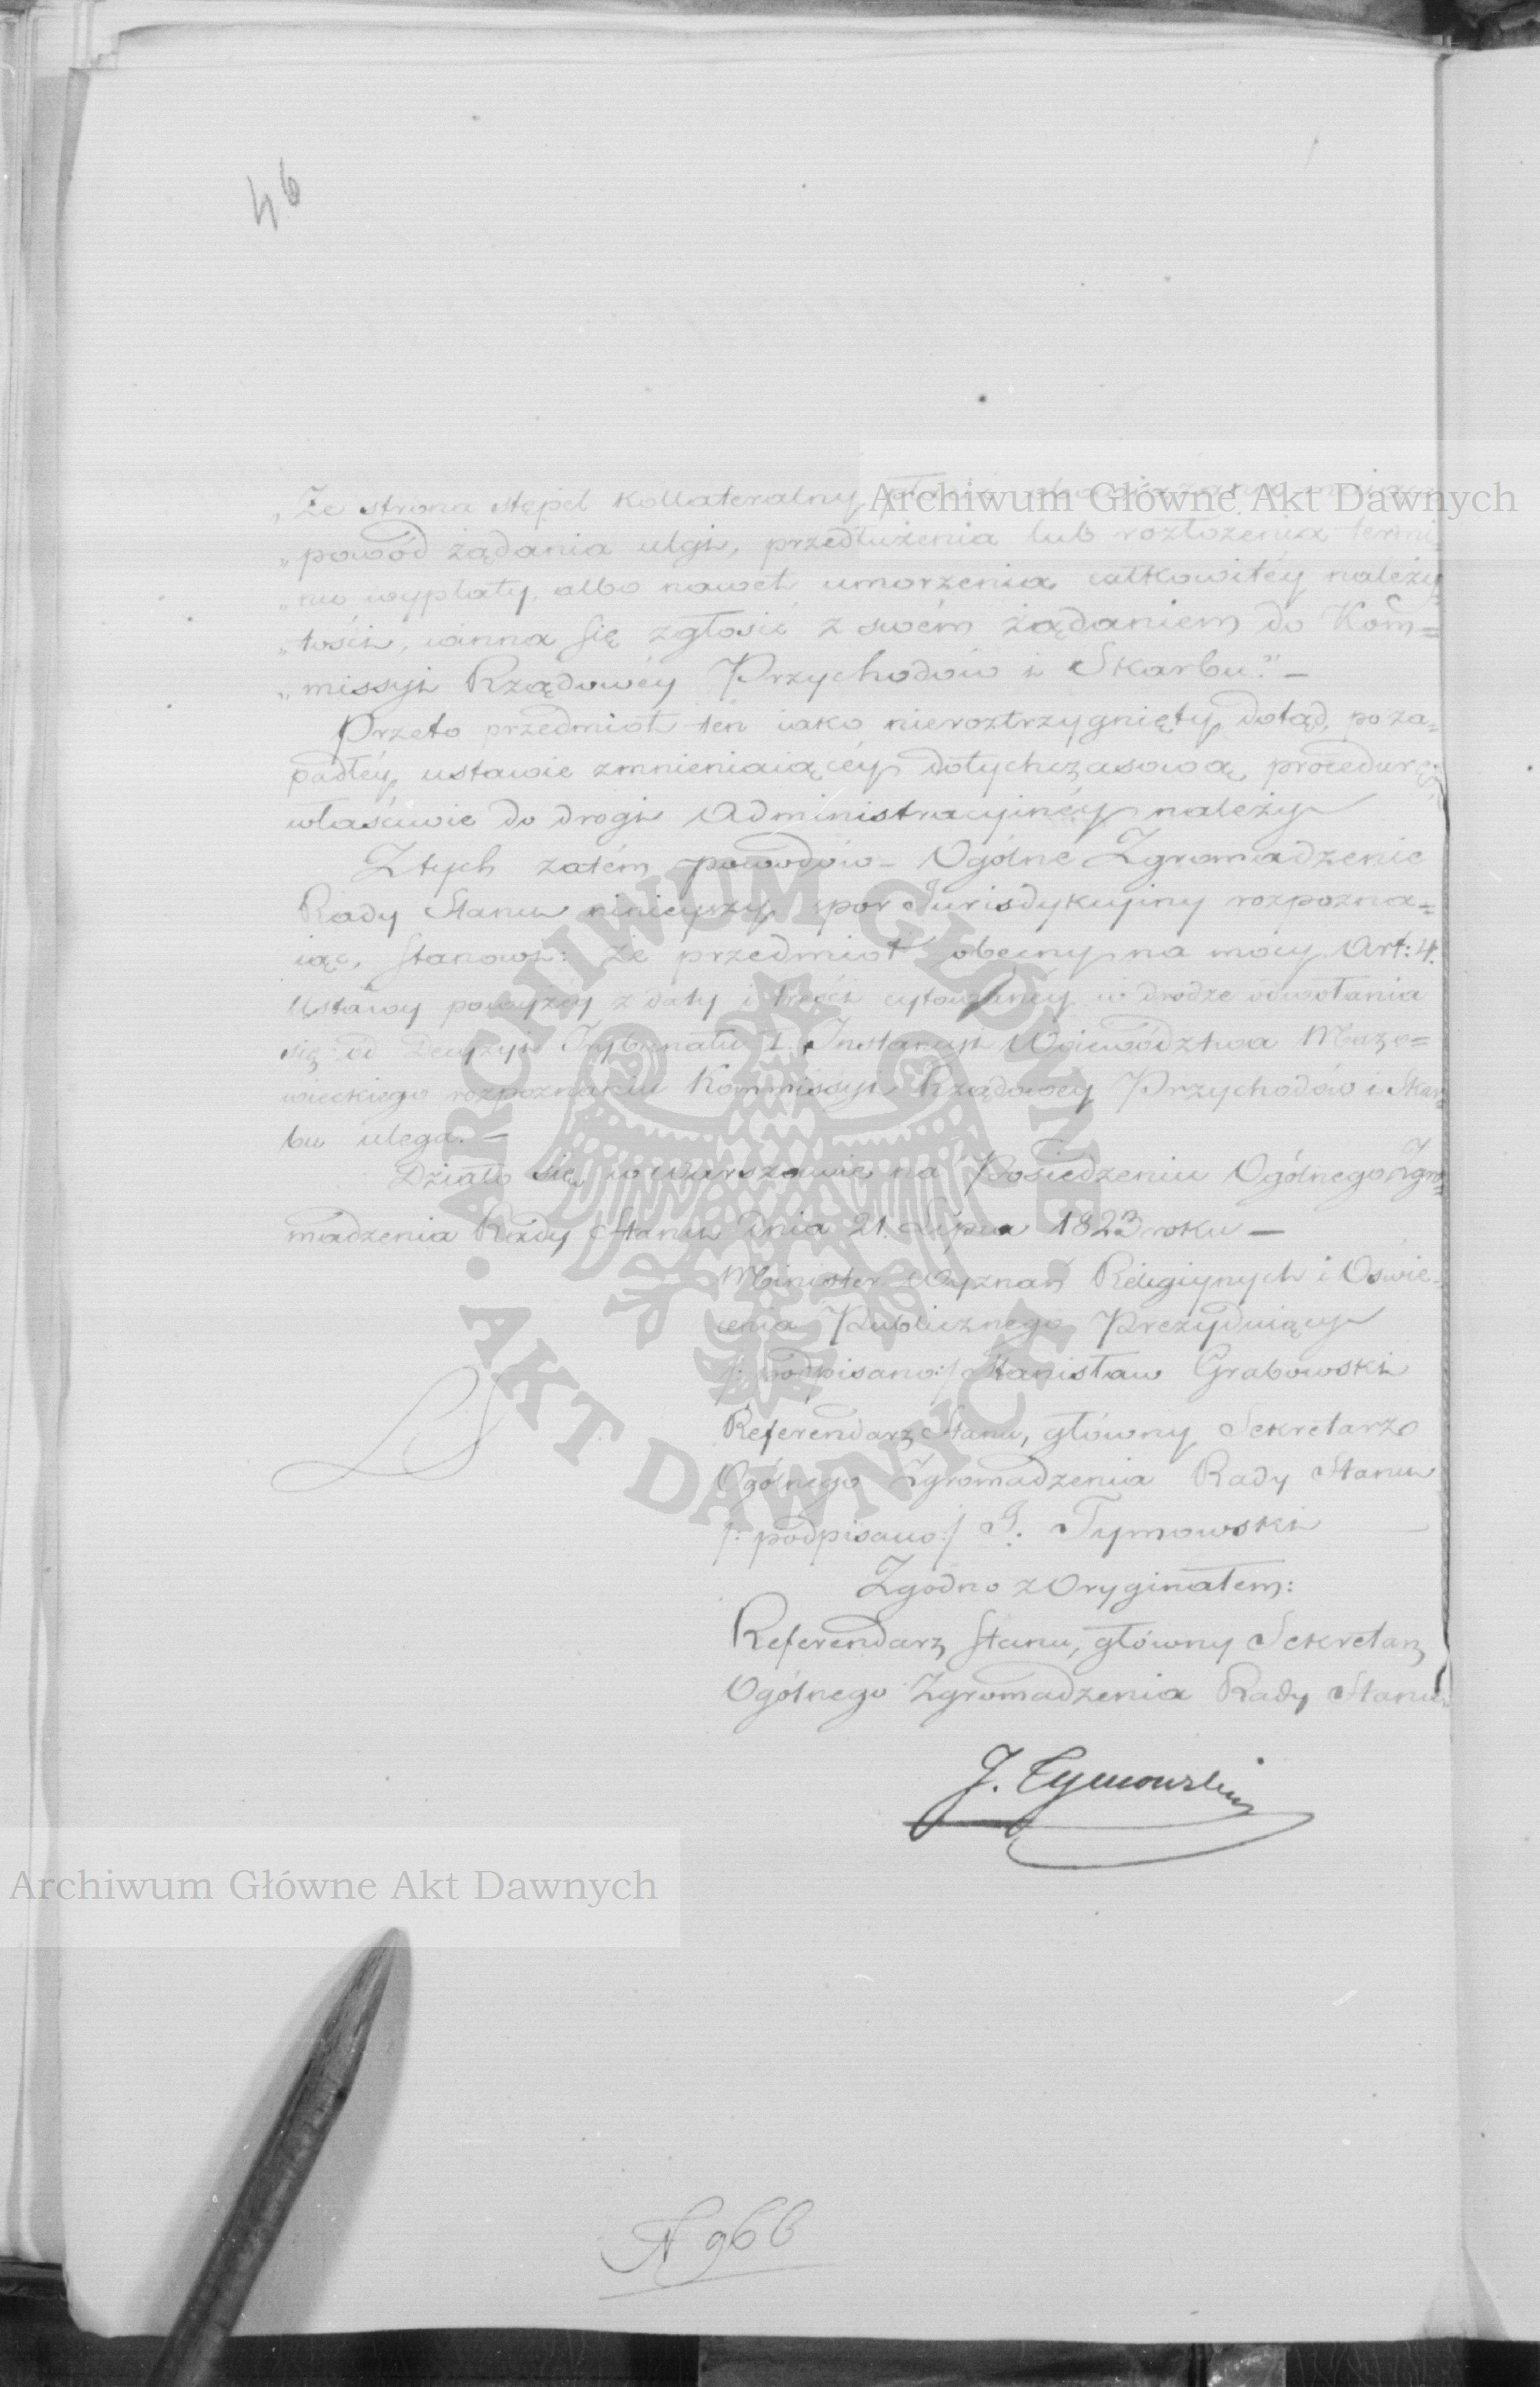 46
Archiwum Główne Akt Dawnych
„Że strona stępel kollateralny
„powód żądania ulgi, przedłużenia lub rozłożenia termi-
„nu wypłaty, albo nawet umorzenia całkowitéy należy-
„tości, winna się zgłosić z swém żądaniem do Kom=
„missyi Rządowéy Przychodów i Skarbu." —
Przeto przedmiot ten iako nieroztrzygnięty dotąd, po za-
padłéy ustawie zmnieniaiącéy dotychczasową procedurę,
właściwie do drogi Administracyinéy należy
Z tych zatém powodów – Ogólne Zgromadzenie
Rady Stanu ninieyszy spor Jurisdykcyiny rozpozna=
iąc, Stanowi: że przedmiot obecny na mocy Art: 4.
Ustawy powyżey z daty i treści cytowaney w drodze odwołania
się od Decyzyi Trybunału I. Instancyi Woiewództwa Mazo=
wieckiego rozpoznaniu Kommissyi Rządowey Przychodów i Skar=
bu ulega. —
Działo się w Warszawie na Posiedzeniu Ogólnego Zgro=
madzenia Rady Stanu dnia 21. Lipca 1823 roku —
Minister Wyznań Religiynych i Oświe-
cenia Publicznego Prezyduiący
/: podpisano :/ Stanisław Grabowski
LS
Referendarz Stanu, główny Sekretarz
Ogólnego Zgromadzenia Rady Stanu
/: podpisano :/ J. Tymowski
Zgodno z Oryginałem:
Referendarz Stanu, główny Sekretarz
Ogólnego Zgromadzenia Rady Stanu
J. Tymowski
Archiwum Główne Akt Dawnych
N 966
ARCHIWUM GŁÓWNE
AKT DAWNYCH